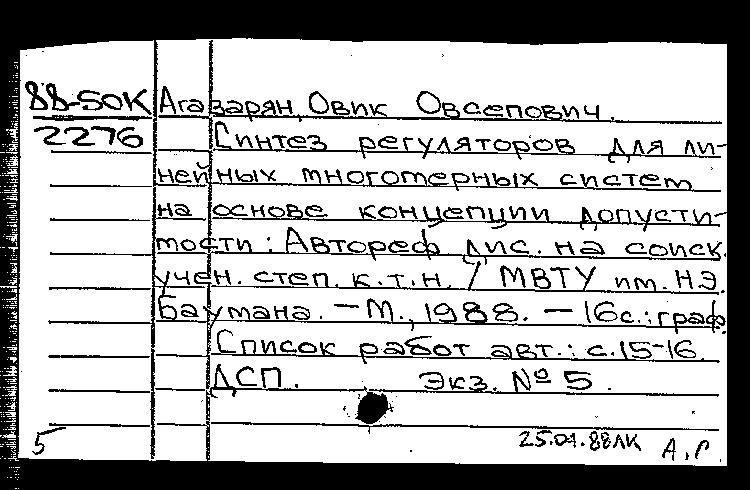 88-50К Агазарян, Овик Овсепович.
2276 Синтез регуляторов для ли-
нейных многомерных систем
на основе концепции допусти-
мости: Автореф дис. на соиск.
учен. степ. к.т.н. / МВТУ им. Н.Э.
Баумана. – М., 1988. – 16с.: граф.
Список работ авт.: с.15-16.
ДСП. Экз. № 5.
5 25.01.88ЛК А.Г.